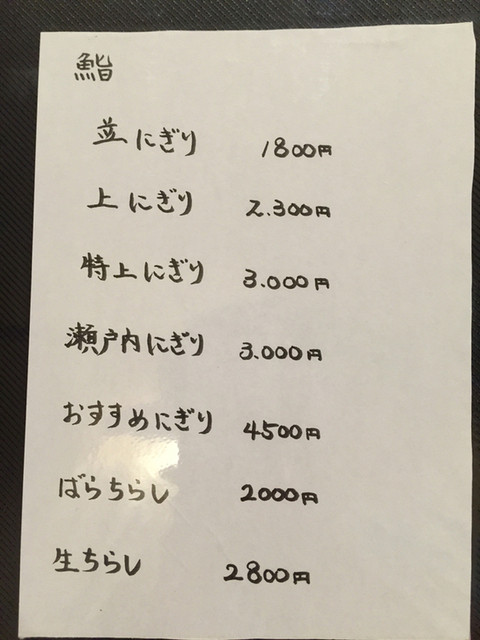 鮨
並にぎり 1800円
上にぎり 2.300円
特上にぎり 3.000円
瀬戸内にぎり 3.000円
おすすめにぎり 4500円
ばらちらし 2000円
生ちらし 2800円